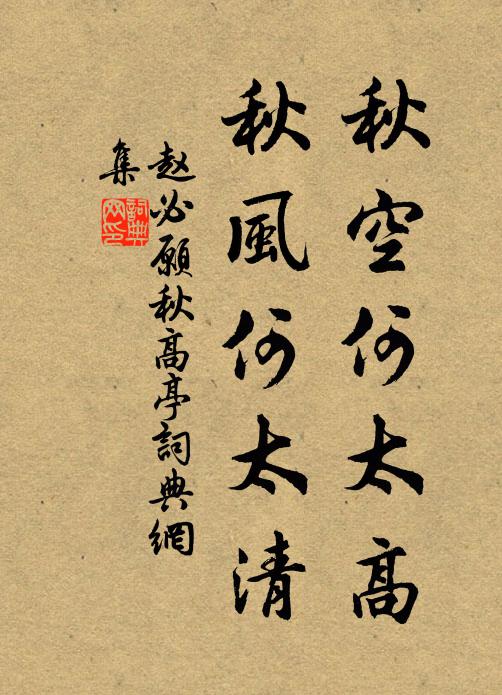 秋空何太高
秋風何太清
赵必願秋高亭詞典網
集
詞典網印